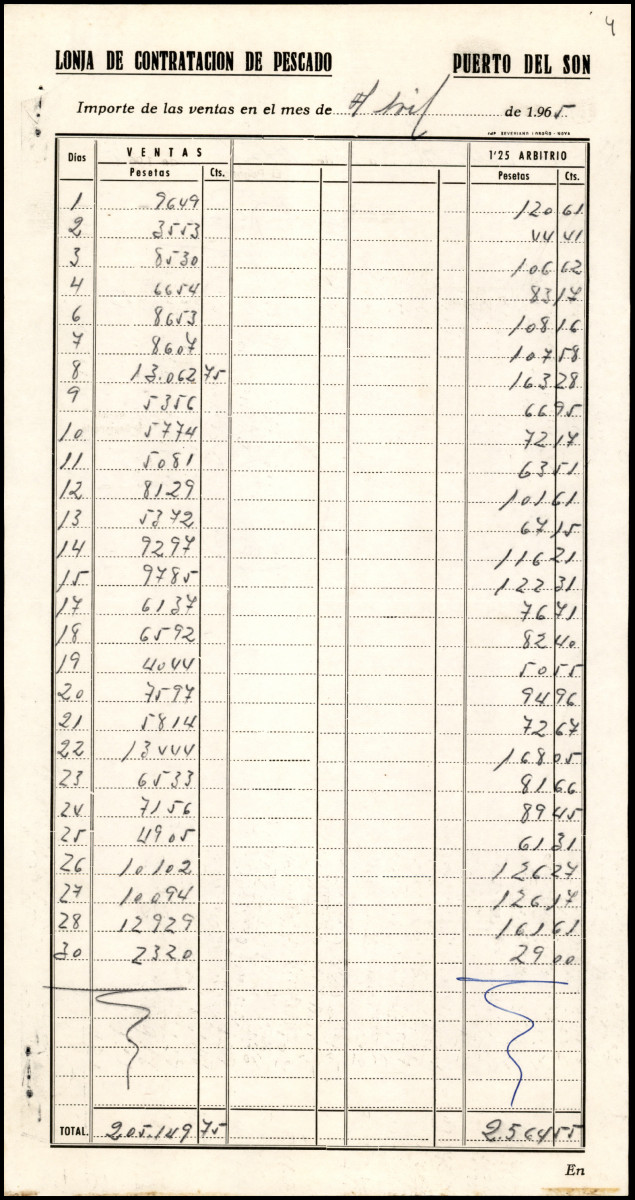 4
LONJA DE CONTRATACION DE PESCADO PUERTO DEL SON
Importe de las ventas en el mes de Abril de 1.965
IMP. SEVERIANO - NOYA
Días VENTAS 1'25 ARBITRIO
Pesetas Cts. Pesetas Cts.
1 9649 120 61
2 3553 44 41
3 8530 106 62
4 6654 83 17
6 8653 108 16
7 8607 107 58
8 13.062 75 163 28
9 5356 66 95
10 5774 72 17
11 5081 63 51
12 8129 101 61
13 5372 67 15
14 9297 116 21
15 9785 122 31
17 6137 76 71
18 6592 82 40
19 4044 50 55
20 7597 94 96
21 5814 72 67
22 13444 168 05
23 6533 81 66
24 7156 89 45
25 4905 61 31
26 10102 126 27
27 10094 126 17
28 12929 161 61
30 2320 29 00
TOTAL. 205.149 75 2.564 55
En